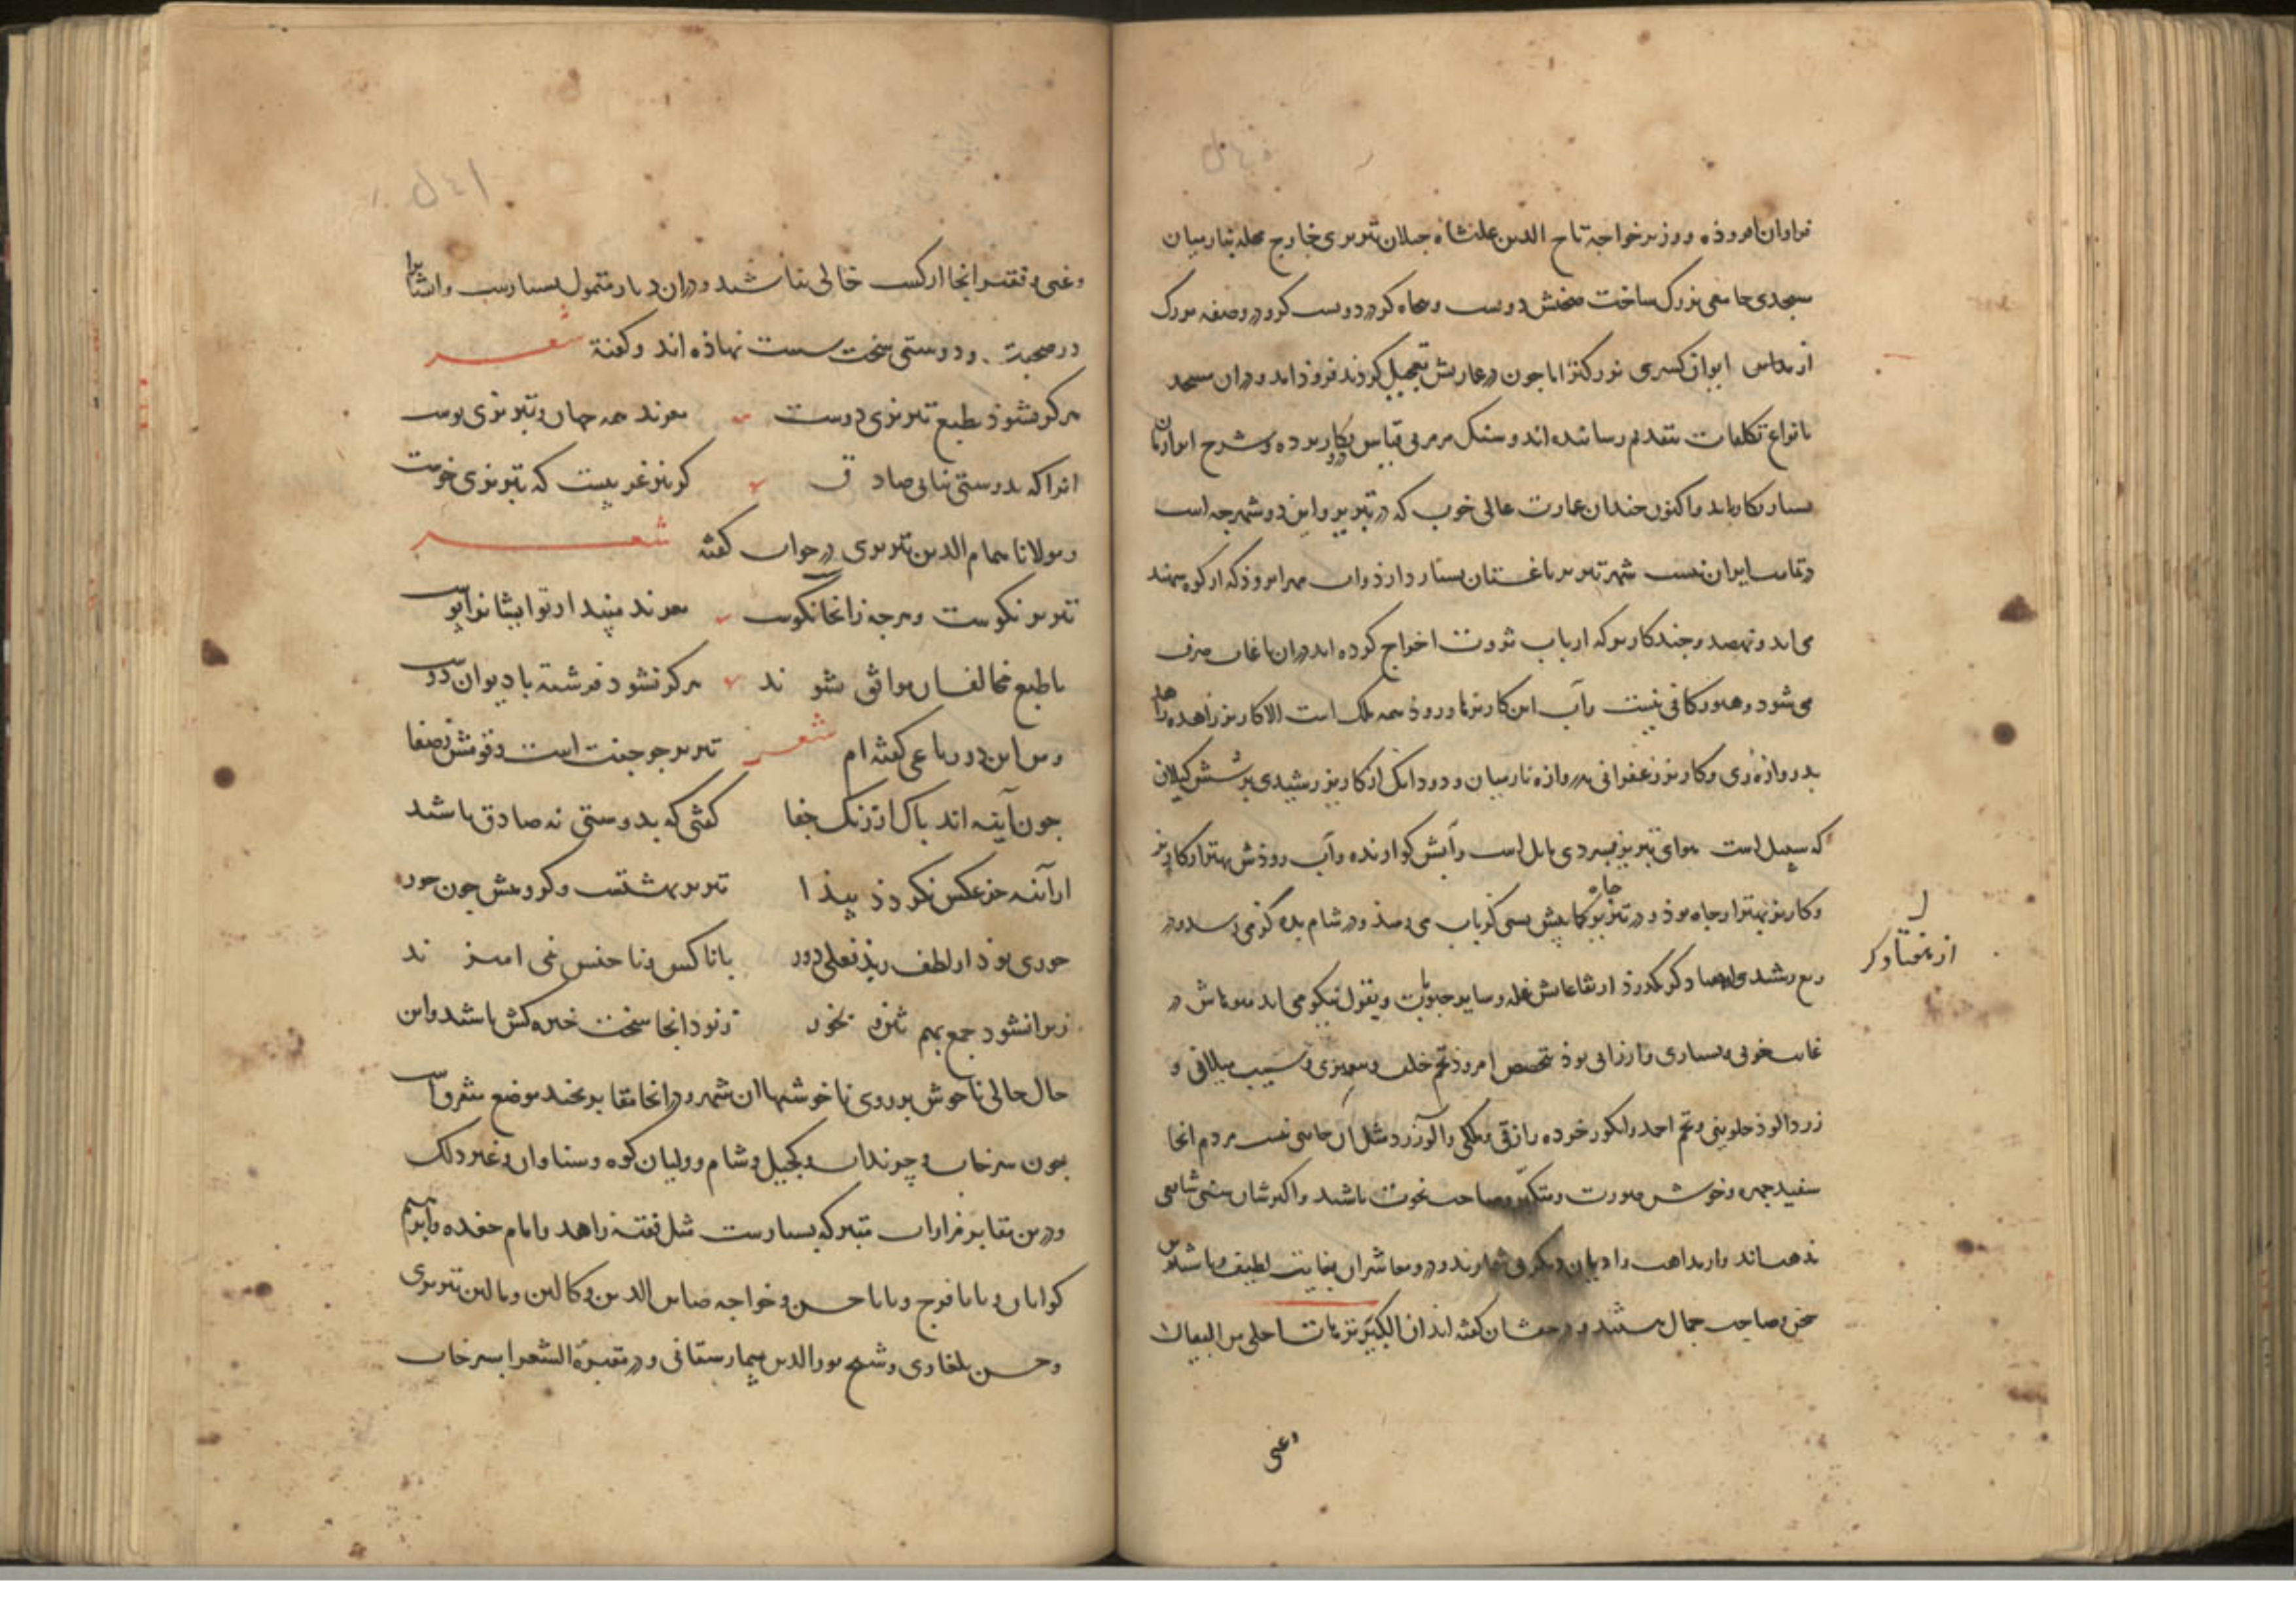 فراوان افزوذه و وزیر خواجه تاج الدین علیشاه جیلان تبریزی خارج محله نارمیان
مسجدی جامعی بزرك ساخت صحنش دویست و پنجاه کز در دویست کز و در و صفه بزرك
از ایوان کسری بزرکتر اما جون در عمارتش تعجیل کردند فروذ امد و در ان مسجد
بانواع تکلفات بتقدیم رسانیده اند و سنك مرمر بی قیاس بکار برده و شرح انرا زمان
بسیار باید و اکنون جندان عمارت عالی خوب که در تبریز و این دو شهرجه است
در تمامت ایران نیست شهر تبریز باغستان بسیار دارذ و اب مهرانروذ که از کوه سهند
می اید و نهصد و جند کاریز که ارباب ثروت اخراج کرده اند در ان باغات صرف
می شود و هنوز کافی نیست و آب این کاریزها و روذ همه ملك است الا کاریز زاهده
بدروازه ری و کاریز زعفرانی بدروازه نارمیان و دو دانك از کاریز رشیدی بر شش کیلان
که سبیل است هوای تبریز بسردی مایل است و آبش کوارنده و آب روذش بهتر از کاریز
و کاریز بهتر از جاه بوذ و در تبریز جاه کمابیش سی کز باب می رسذ و در شام بده کز می رسد و در
ربع رشیدی از هفتاد کز بگذرذ ارتفاعاتش غله و سایر حبوبات و بقول نیکو می اید میوهاش در
غایت خوبی و بسیاری و ارزانی بوذ بتخصیص امروذ تخم خلف و پیغمبری و سیب سلانی و
زردالوذ حلوینی و تخم احمد و انکور خرده رازقی و ملکی و الو زرد مثل آن جایی نیست مردم انجا
سفید جهره و خوش صورت و متکبر و صاحب نخوت باشند و اکثرشان سنی شافعی
مذهب اند و از مذاهب و ادیان دیکر بی شمارند و در و معاشران بغایت لطیف و شیرین
سخن و صاحب جمال هستند و در حقشان کفته اند ان الکبیر تبریزیا احلی من
وغنی
از هفتاد کز
وغنی و فقیر انجا از کسب خالی نباشند و در ان دیار متمول بسیارست و ایشانرا
در صحبت و دوستی سخت سست نهاذه اند و کفتة شعر
هرکز نشوذ بطبع تبریزی دوست معزند همه جهان و تبریزی پوست
انرا که بدوستی نیابی صادق کر نیز غریبست که تبریزی خوست
و مولانا همام الدین تبریزی در جواب کفته شعر
تبریز نکوست و هرجه زانجا نکوست معزند مپندار تو ایشانرا پوست
با طبع مخالفان موافق نشوند هرکز نشود فرشته با دیوان دوست
و من این دو رباعی کفته ام شعر تبریز جو جنت است و قومش ز صفا
جون آینه اند پاك از زنك جفا کفتی که بدوستی نه صادق باشند
از آینه جز عکس نکردذ پیذا تبریز بهشتست و کروهش جون حور
حوری بوذ از لطف ز بد فعلی دور با ناکس و ناجنس نمی امیزند
زیرا نشود جمع بهم ... رنود انجا سخت خیره کش باشند و این
حال خالی ناخوش بر روی ناخوشیها ان شهر و در انجا مقابر بجند موضع متفرق است
جون سرخاب و چرنداب و کجیل و شام و ولیان کوه و سنباوان و غیر ذلك
و در ین مقابر مزارات متبرکه بسیارست مثل فقیه زاهد و امام حفده و ابراهیم
کواهان و بابا فرج و بابا حسن و خواجه ضیاء الدین و کمالین و مالین تبریزی
و حسن بلغاری و شیخ نور الدین بیمارستانی و در مقبرة الشعرا بسرخاب